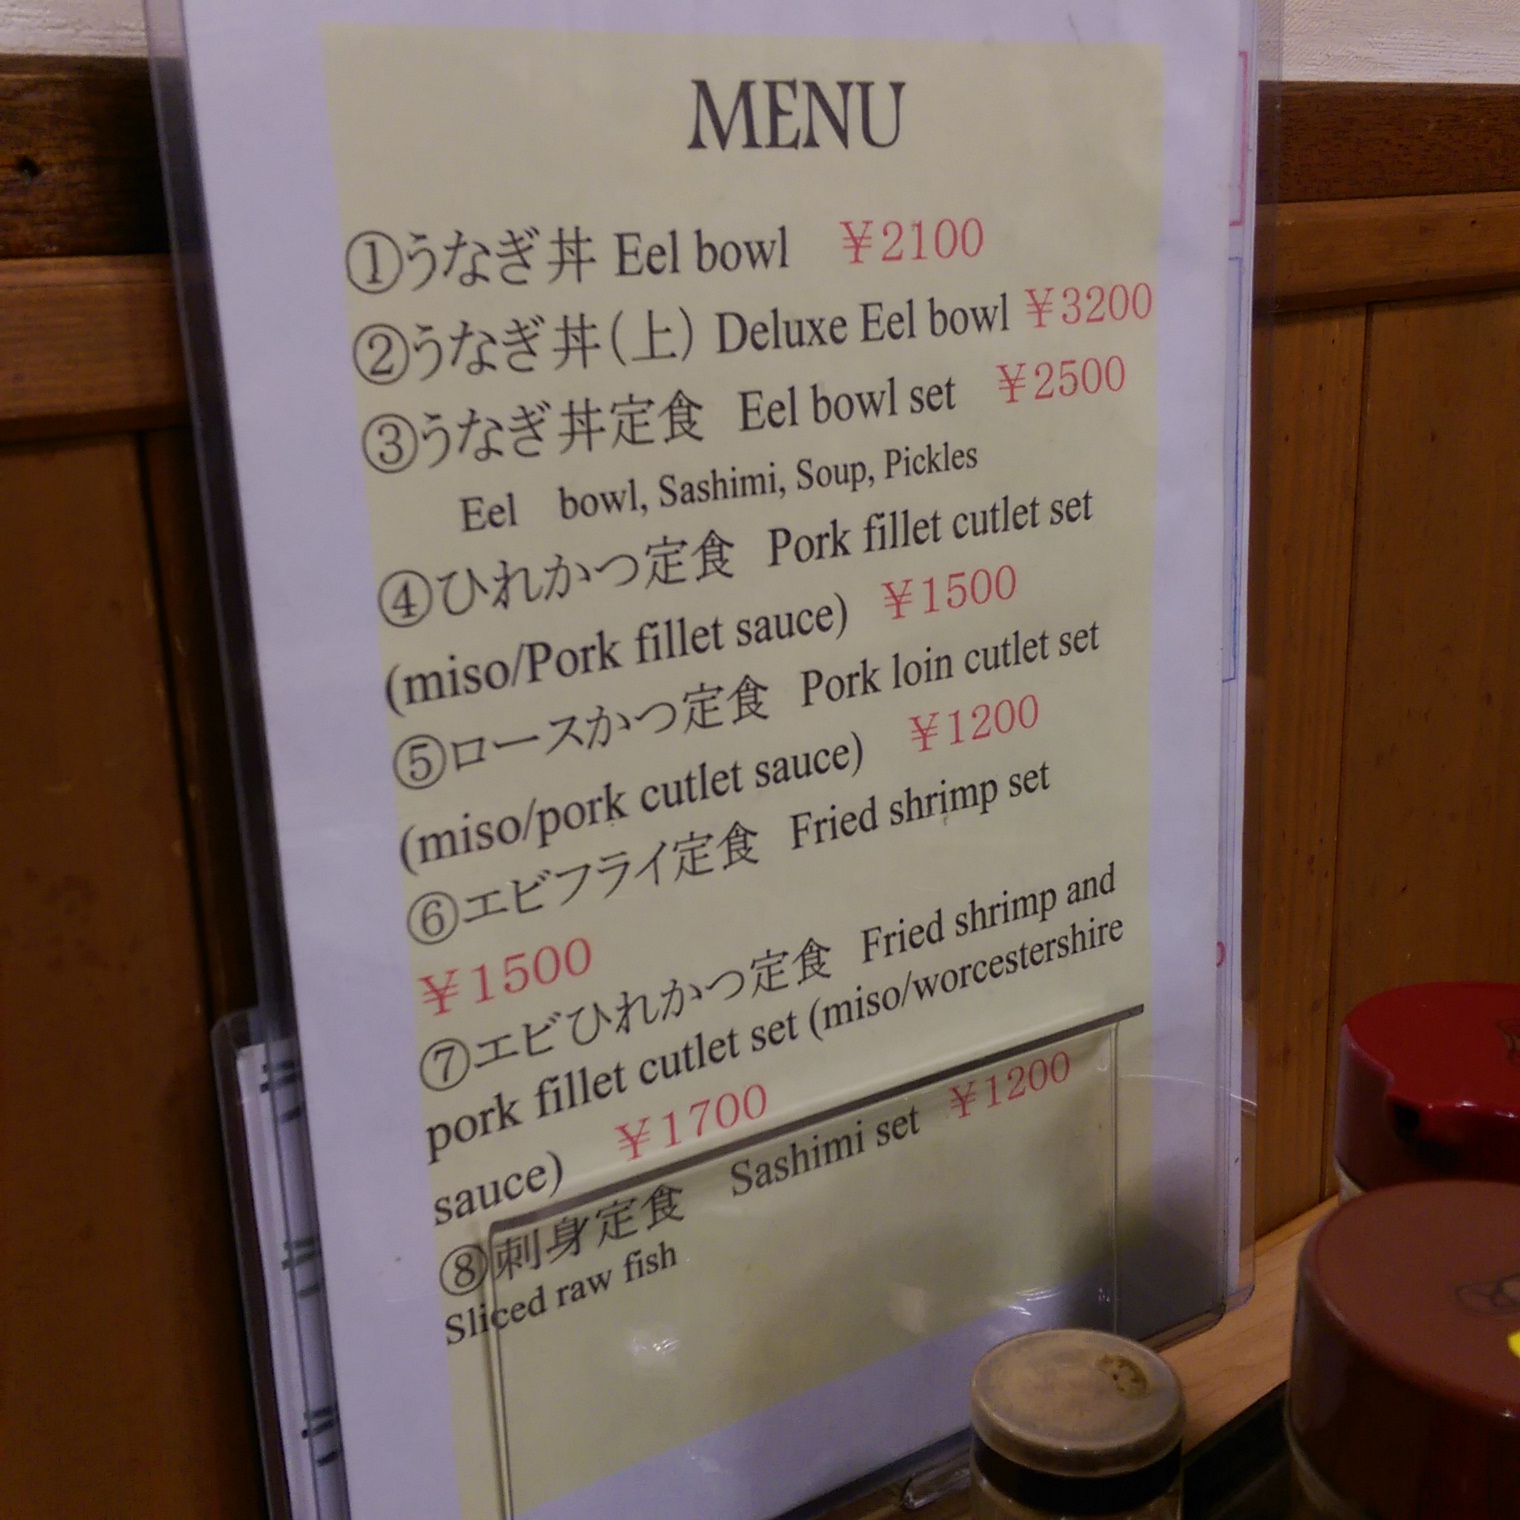 MENU
①うなぎ丼 Eel bowl ￥2100
②うなぎ丼(上) Deluxe Eel bowl ￥3200
③うなぎ丼定食 Eel bowl set ￥2500
Eel bowl, Sashimi, Soup, Pickles
④ひれかつ定食 Pork fillet cutlet set
(miso/Pork fillet sauce) ￥1500
⑤ロースかつ定食 Pork loin cutlet set
(miso/pork cutlet sauce) ￥1200
⑥エビフライ定食 Fried shrimp set
￥1500
⑦エビひれかつ定食 Fried shrimp and
pork fillet cutlet set (miso/worcestershire
sauce) ￥1700
⑧刺身定食 Sashimi set ￥1200
Sliced raw fish